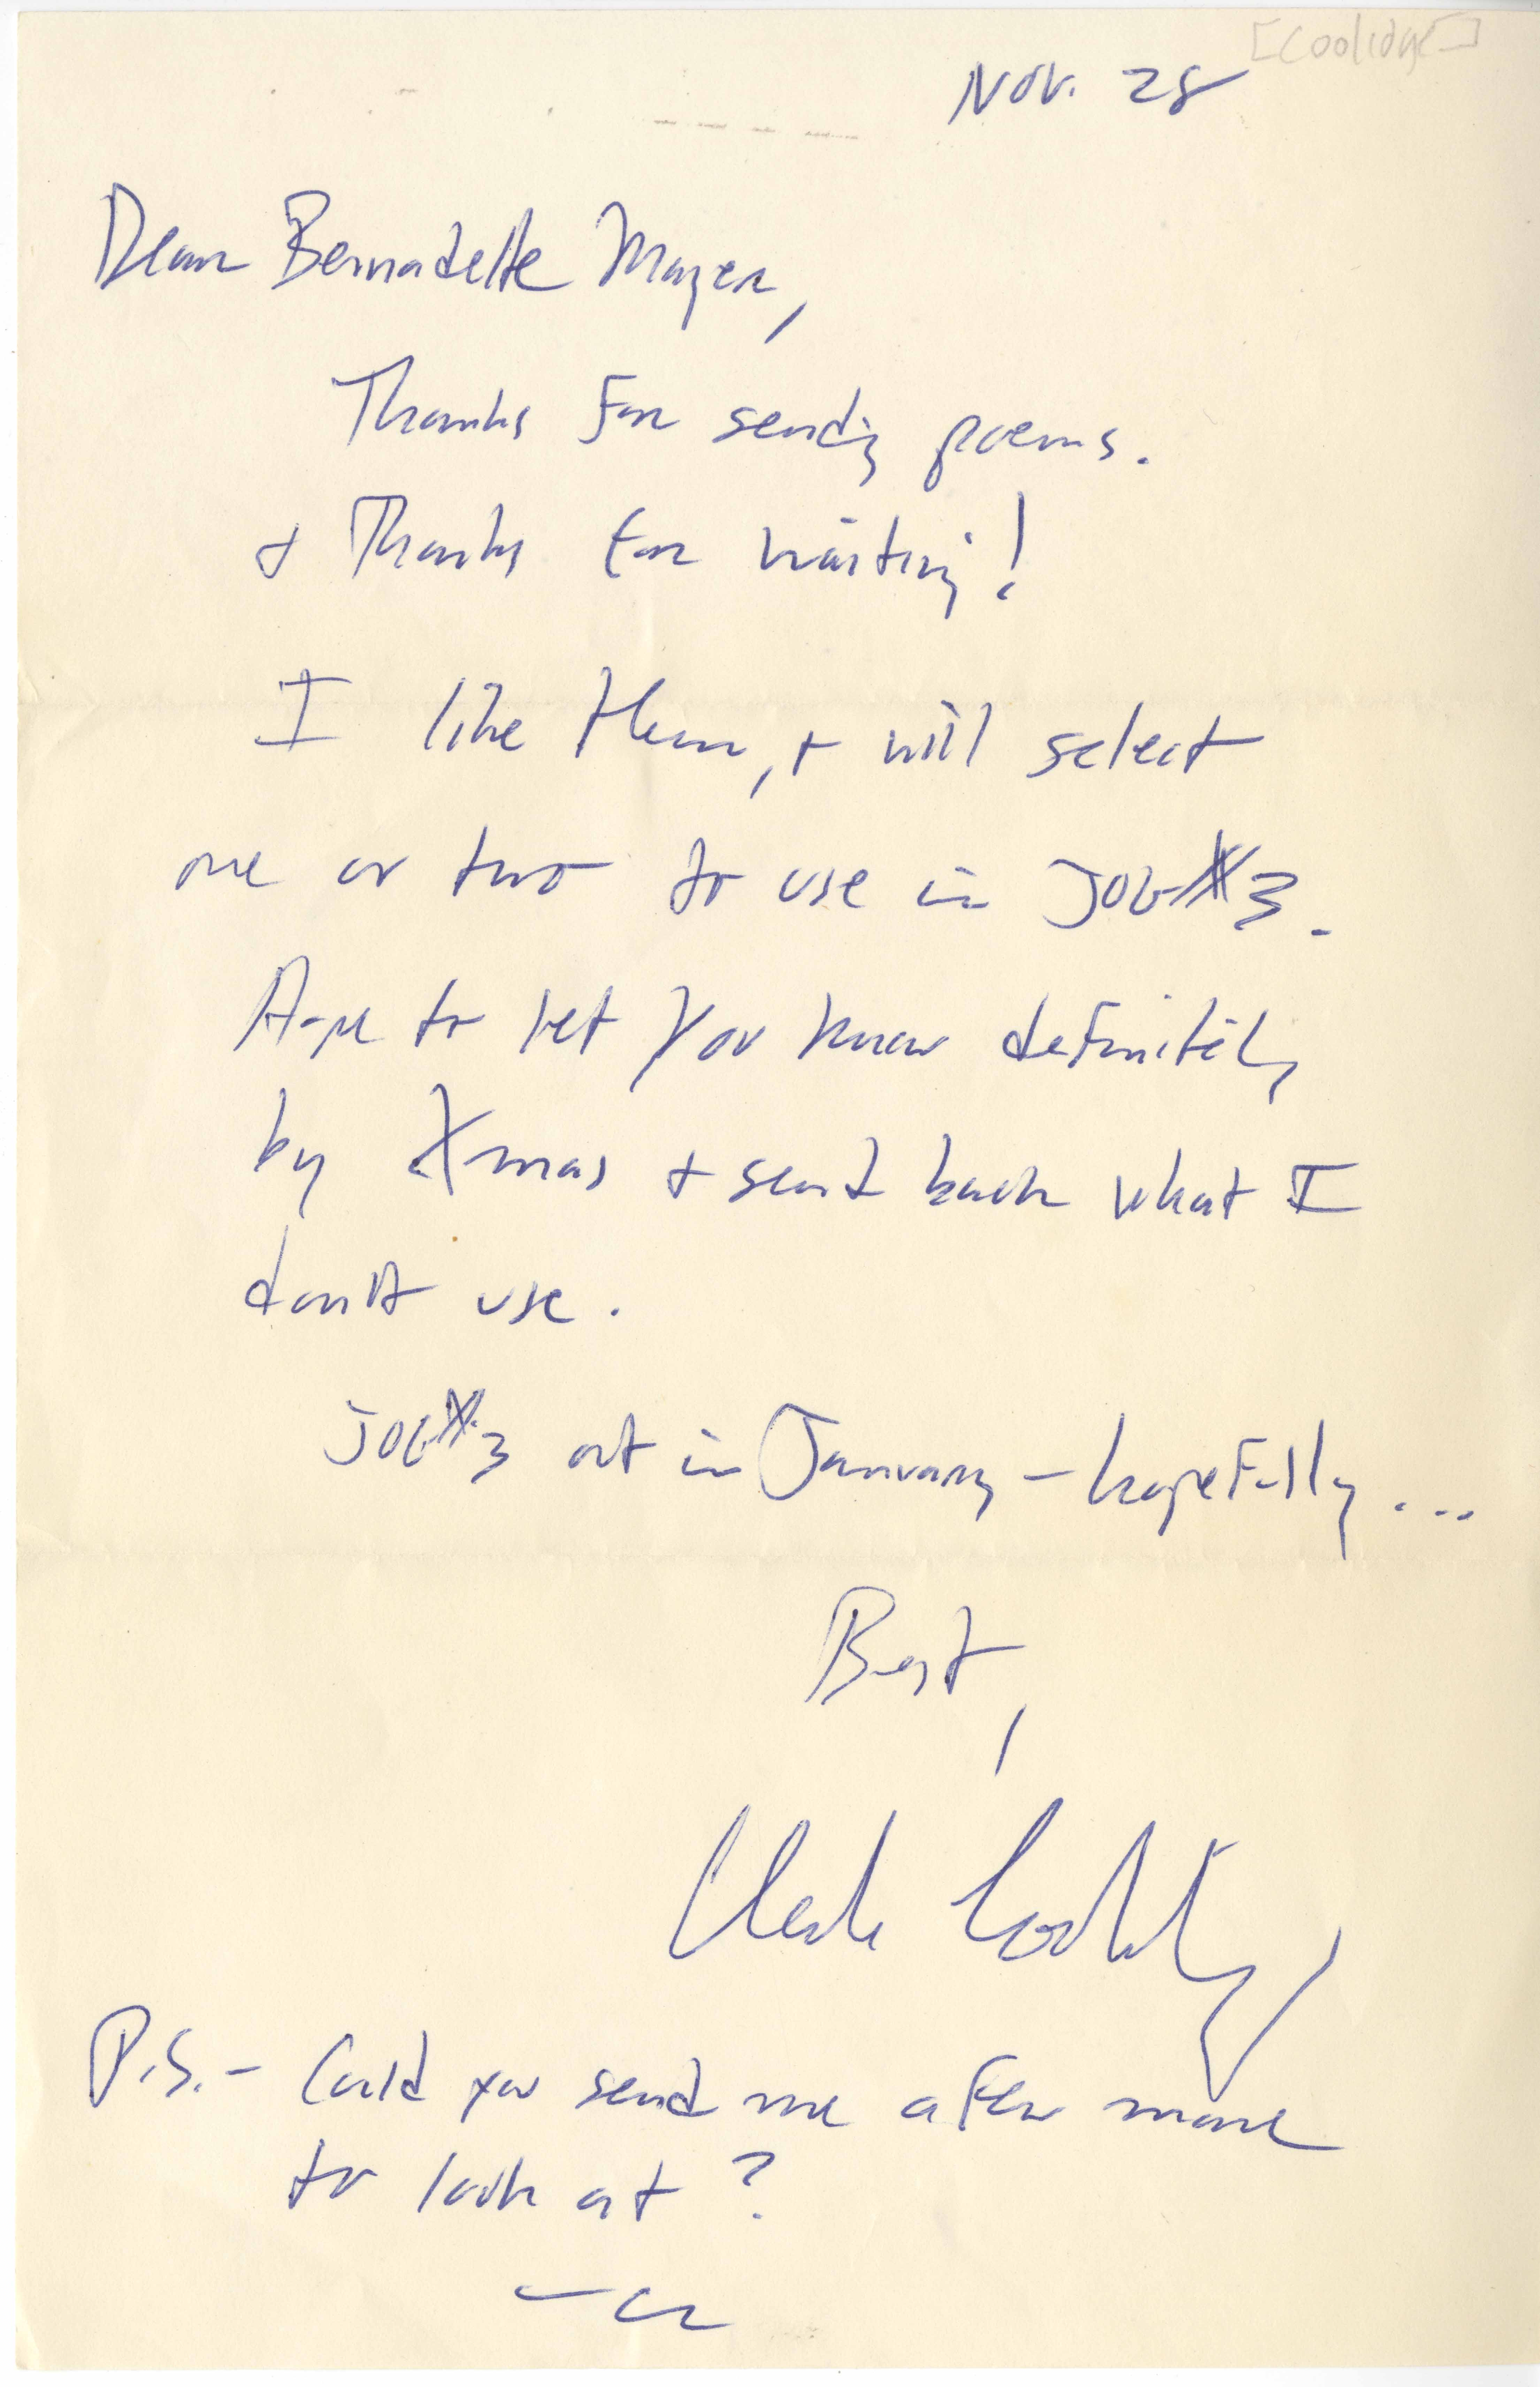 [Coolidge]
Nov. 28
Dear Bernadette Mayer,
Thanks for sending poems.
+ Thanks for waiting!
I like them, + will select
one or two to use in JOG#3.
Hope to let you know definitely
by Xmas + send back what I
don't use.
JOG#3 out in January – hopefully...
Best,
Clark Coolidge
P.S. – Could you send me a few more
to look at?
– CC